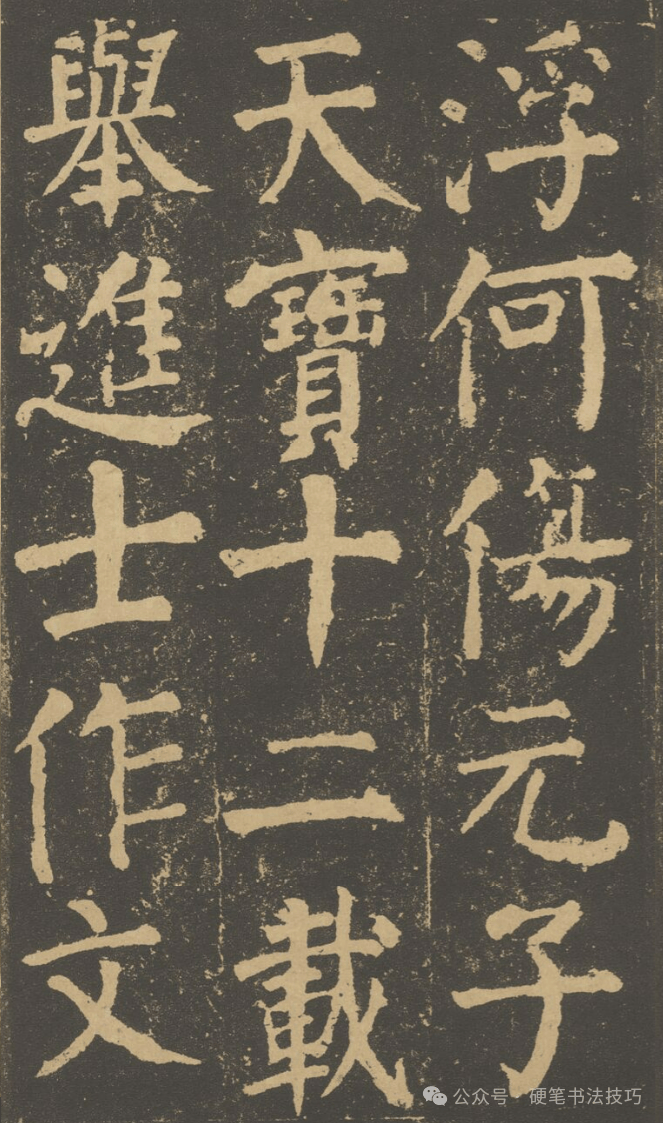 浮何傷元子
天寶十二載
舉進士作文
公众号·硬笔书法技巧